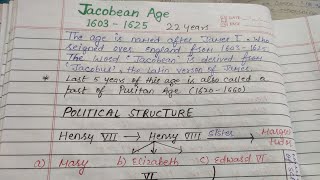 Jacobean Age
1603 - 1625 22 years
The age is named after James I, who
reigned over england from 1603-1625.
The word 'Jacobean' is derived from
'Jacobus', the latin version of James.
* Last 5 years of this age is also called a
part of Puritan Age (1620-1660)
POLITICAL STRUCTURE
Henry VII → Henry VIII Sister → Margaret
Tudor
a) Mary b) Elizabeth c) Edward VI
VI